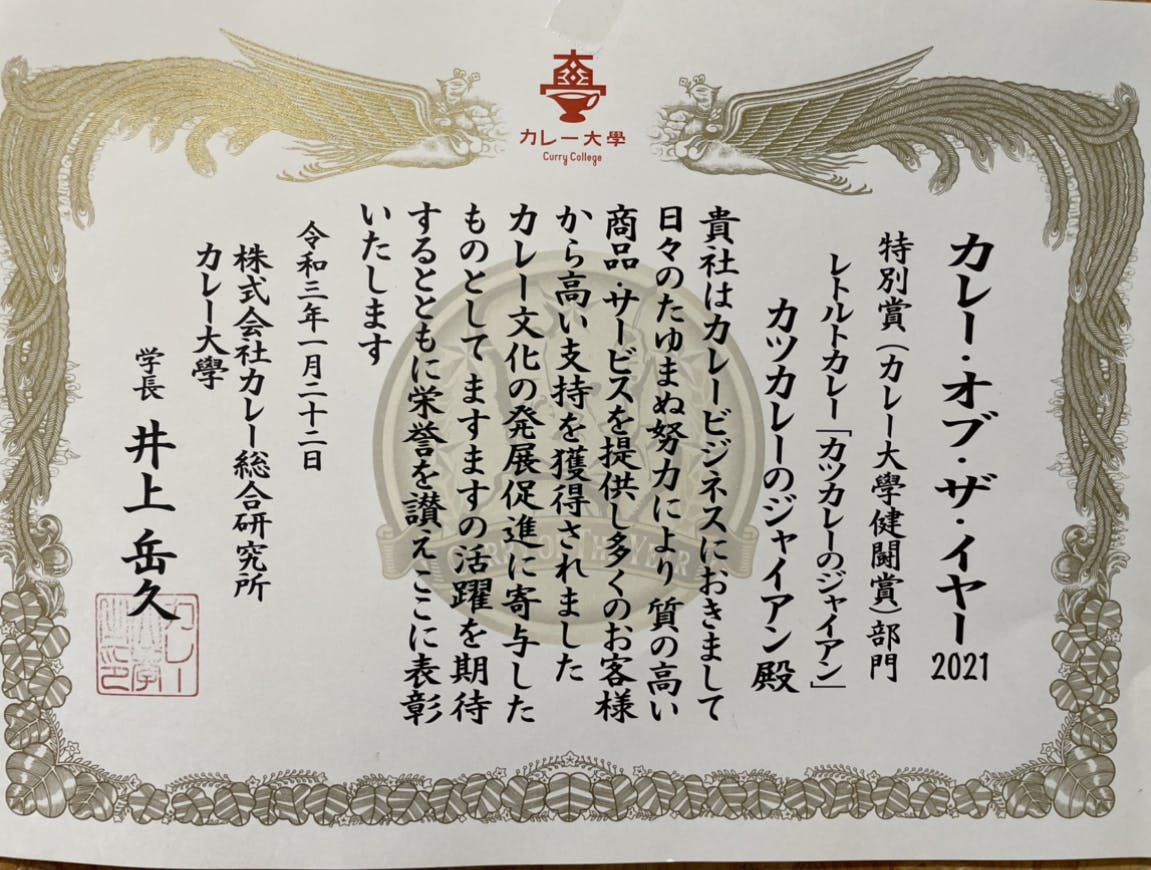 カレー大學
Curry College
カレー・オブ・ザ・イヤー2021
特別賞（カレー大學健闘賞）部門
レトルトカレー「カツカレーのジャイアン」
カツカレーのジャイアン殿
貴社はカレービジネスにおきまして
日々のたゆまぬ努力により 質の高い
商品・サービスを提供し多くのお客様
から高い支持を獲得されました
カレー文化の発展促進に寄与した
ものとして ますますの活躍を期待
するとともに栄誉を讃えここに表彰
いたします
令和三年一月二十二日
株式会社カレー総合研究所
カレー大學
学長 井上岳久
CURRY OF THE YEAR